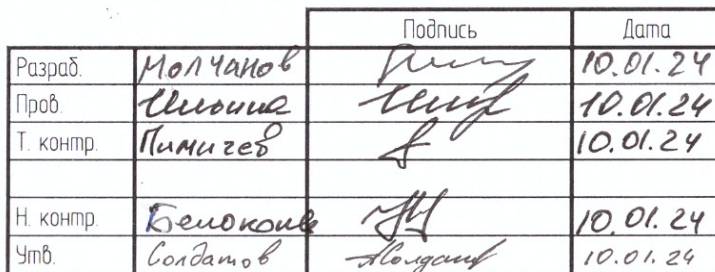 Подпись Дата
Разраб. Молчанов 10.01.24
Пров. Ильина 10.01.24
Т. контр. Пимичев 10.01.24
Н. контр. Белоконь 10.01.24
Утв. Солдатов 10.01.24